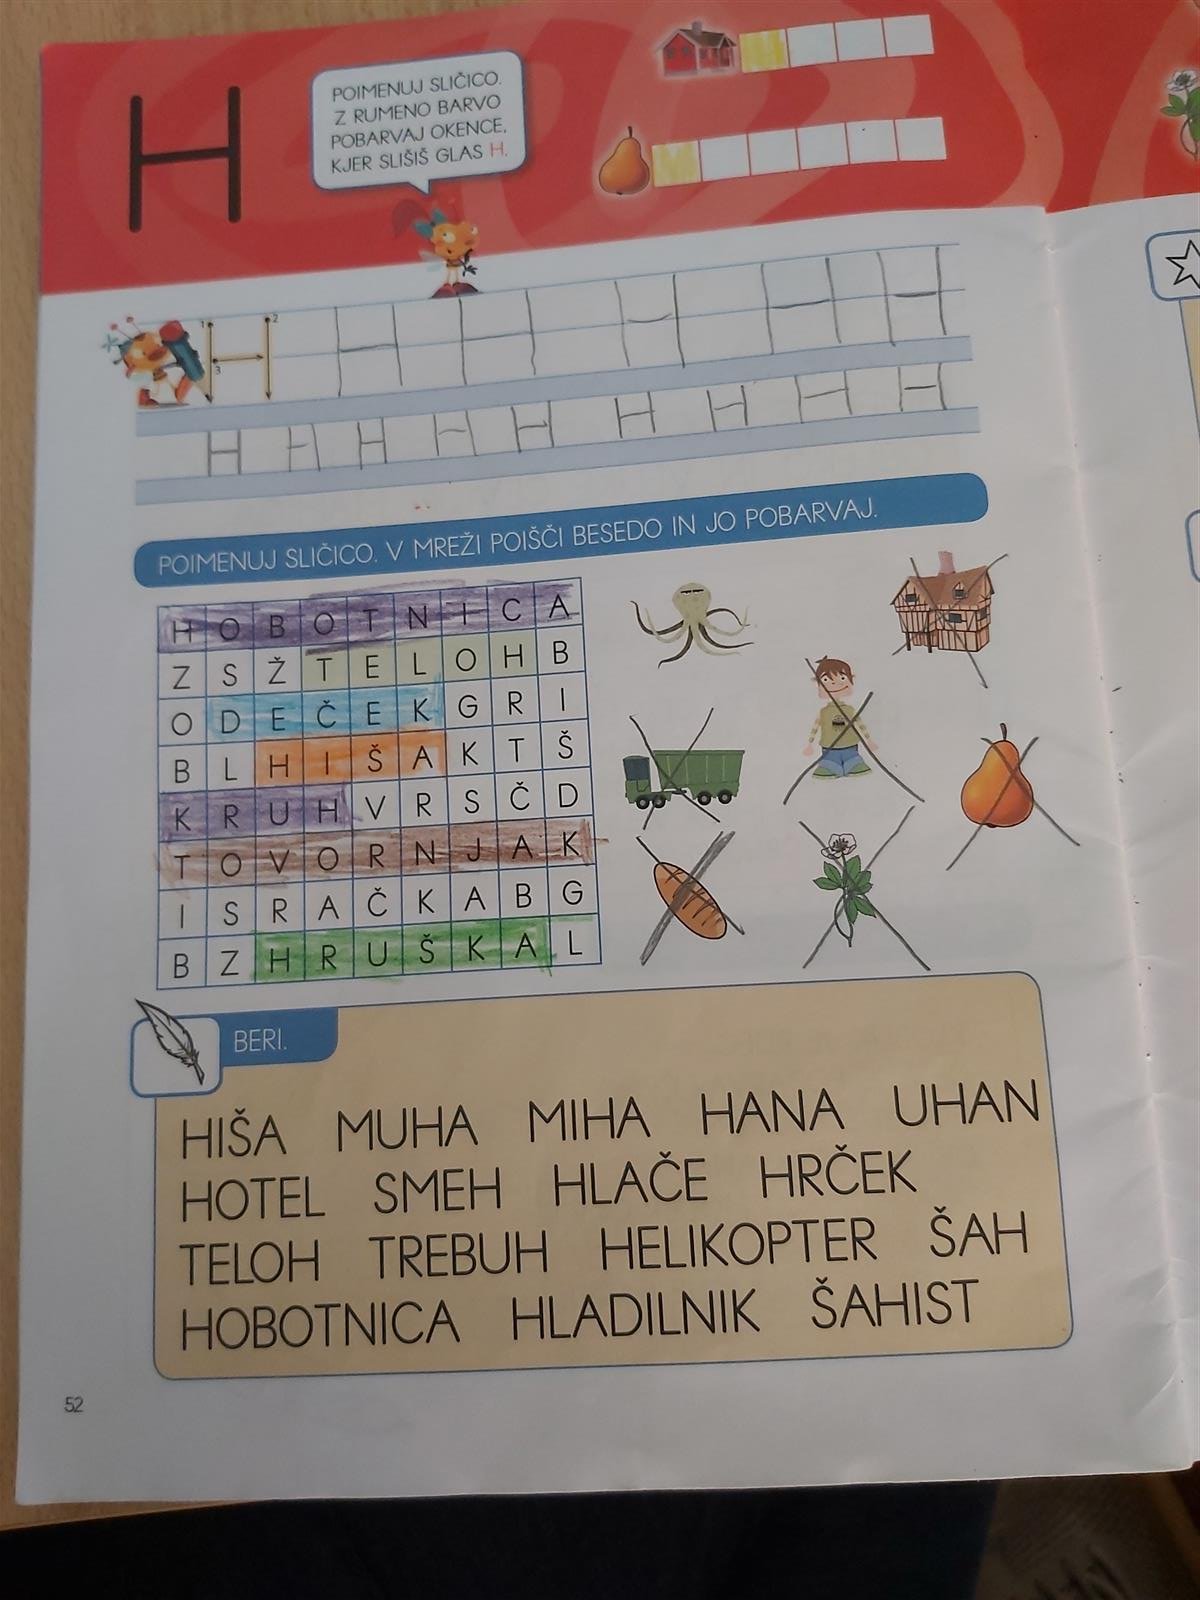 H
POIMENUJ SLIČICO.
Z RUMENO BARVO
POBARVAJ OKENCE,
KJER SLIŠIŠ GLAS H.
1 2 H H H H H H
3
H H H H H H H H H
POIMENUJ SLIČICO. V MREŽI POIŠČI BESEDO IN JO POBARVAJ.
H O B O T N I C A
Z S Ž T E L O H B
O D E Č E K G R I
B L H I Š A K T Š
K R U H V R S Č D
T O V O R N J A K
I S R A Č K A B G
B Z H R U Š K A L
BERI.
HIŠA MUHA MIHA HANA UHAN
HOTEL SMEH HLAČE HRČEK
TELOH TREBUH HELIKOPTER ŠAH
HOBOTNICA HLADILNIK ŠAHIST
52